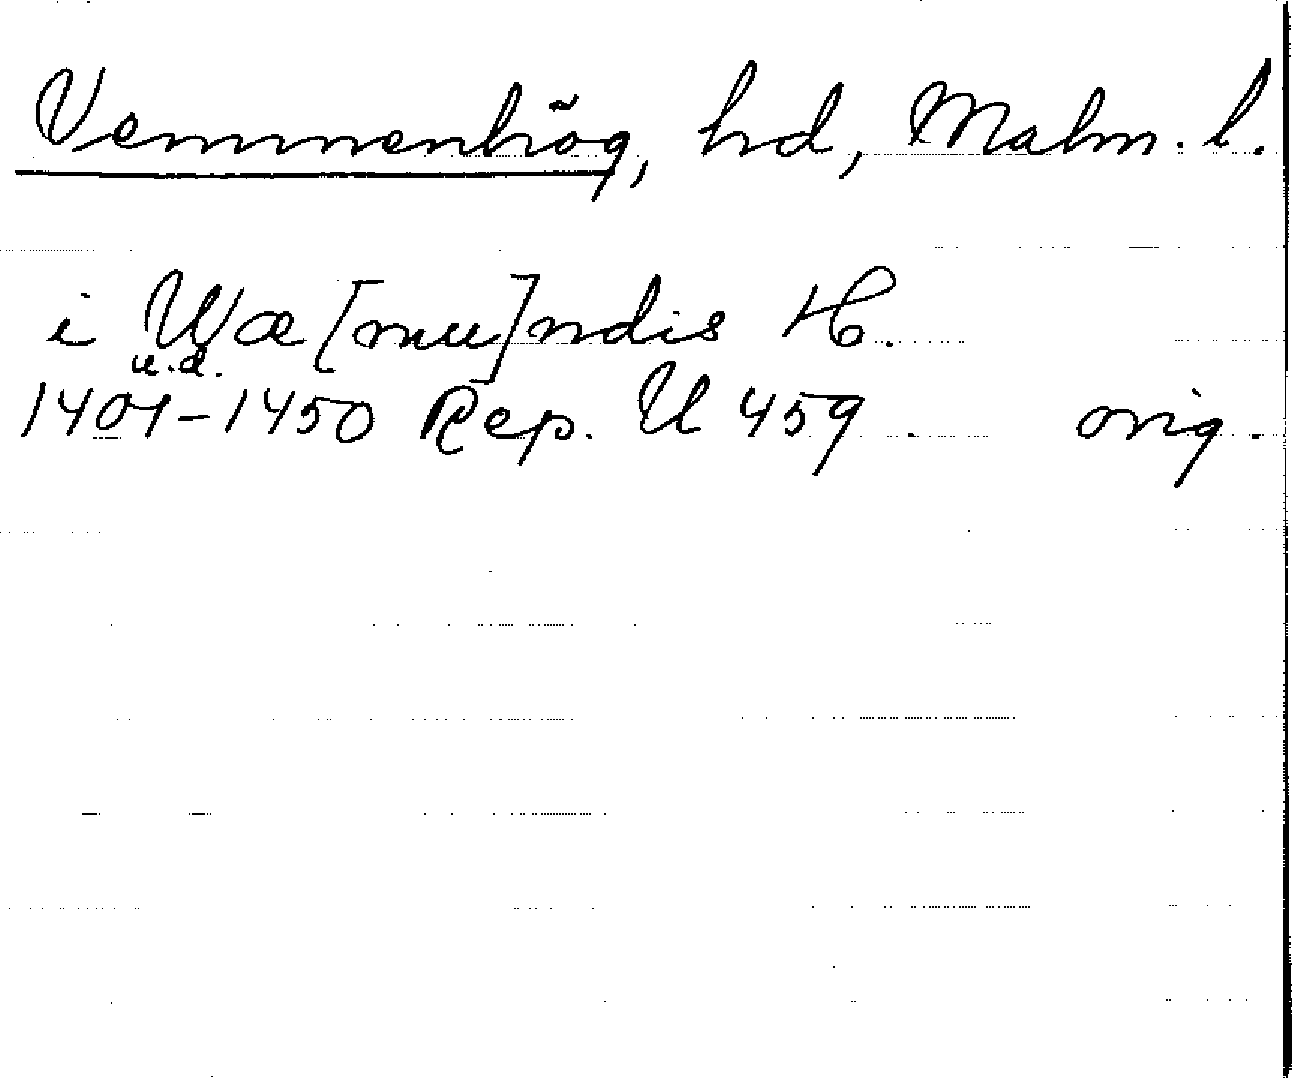 Vemmenhög, hd, Malm. l.
i Wæ[mu]ndis H.
u.d.
1401-1450 Rep. U 459 orig.